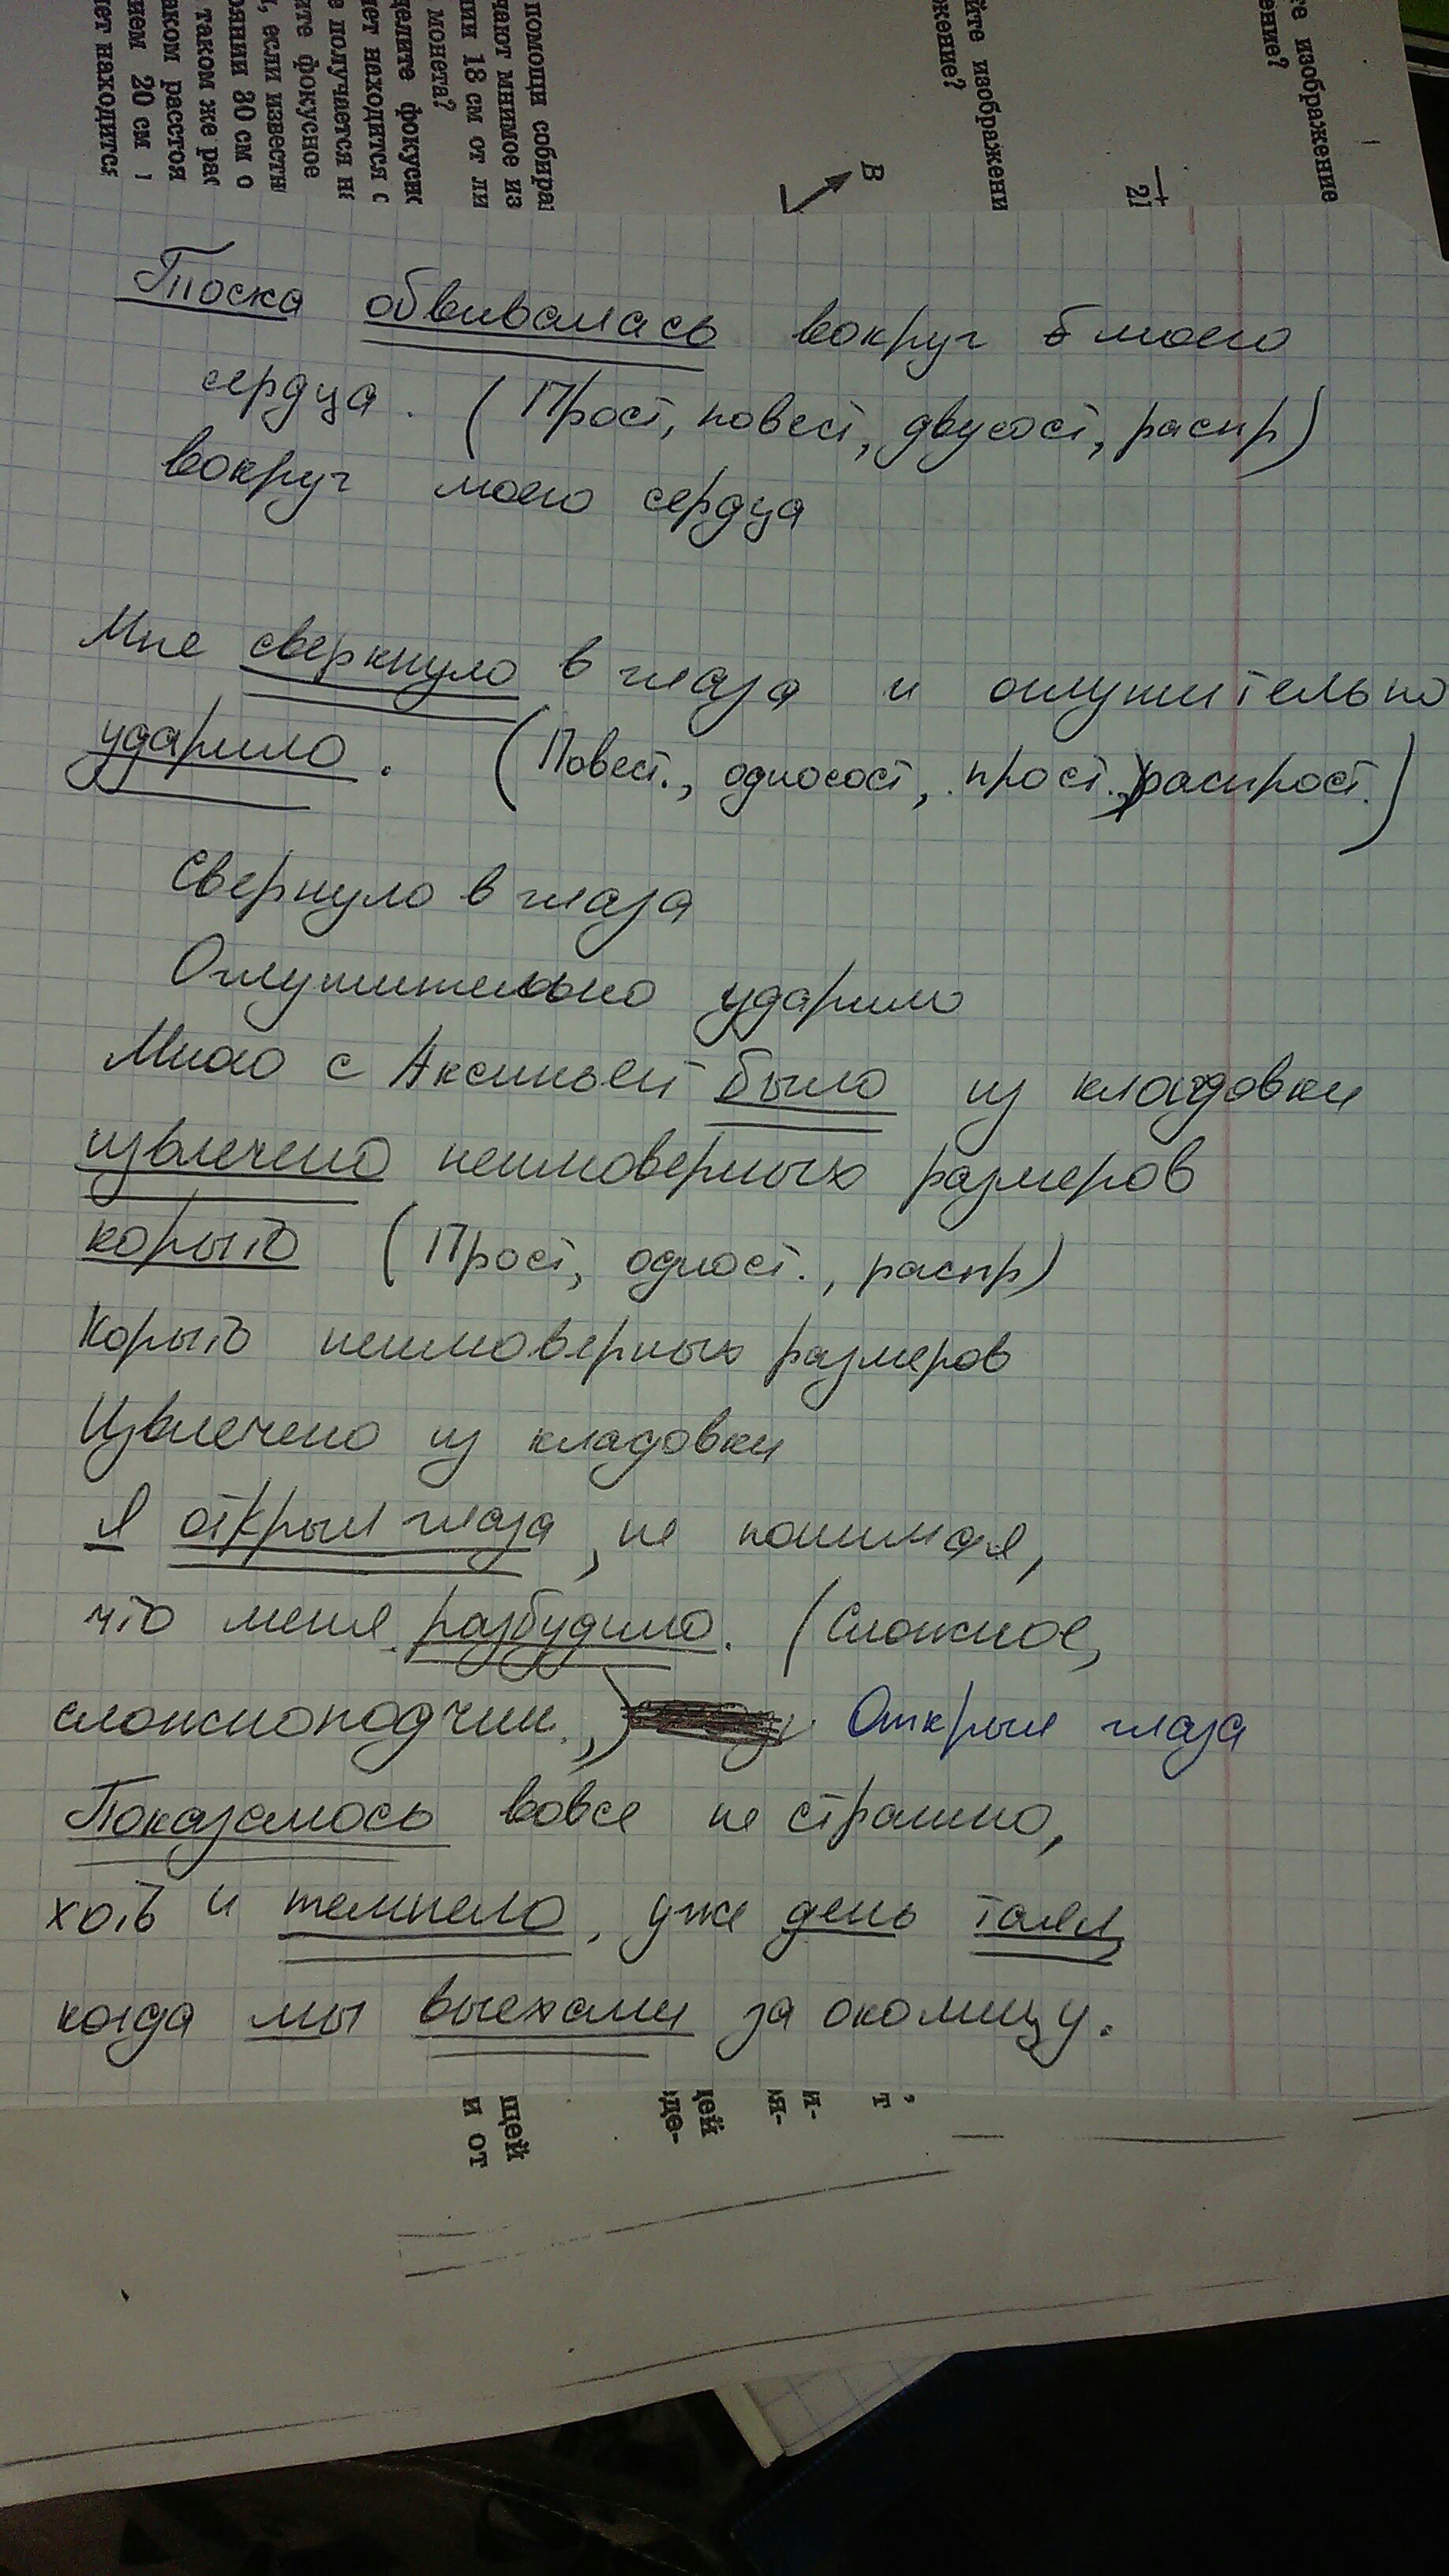 помощи собира
чают мнимое из
нии 18 см от ли
монета?
делите фокусн
ет находится с
е получается не
ите фокусное
, если известн
оянии 80 см о
таком же рас
аком расстоя
ием 20 см
ет находится
йте изображени
жение?
те изображение
ение?
В
Тоска обвивалась вокруг моего
сердца. (Прост, повест, двусост, распр)
вокруг моего сердца
Мне сверкнуло в глаза и оглушительно
ударило. (Повест., односост, прост., распрост.)
Свернуло в глаза
Оглушительно ударило
Мною с Аксиньей было из кладовки
извлечено неимоверных размеров
корыто (Прост, одност., распр)
Корыто неимоверных размеров
Извлечено из кладовки
Я открыл глаза, не понимая,
что меня разбудило. (Сложное,
сложноподчин.,) Открыл глаза
Показалось вовсе не страшно,
хоть и темнело, уже день таял,
когда мы выехали за околицу.
щей
и от
дей
де-
ия-
и-
т